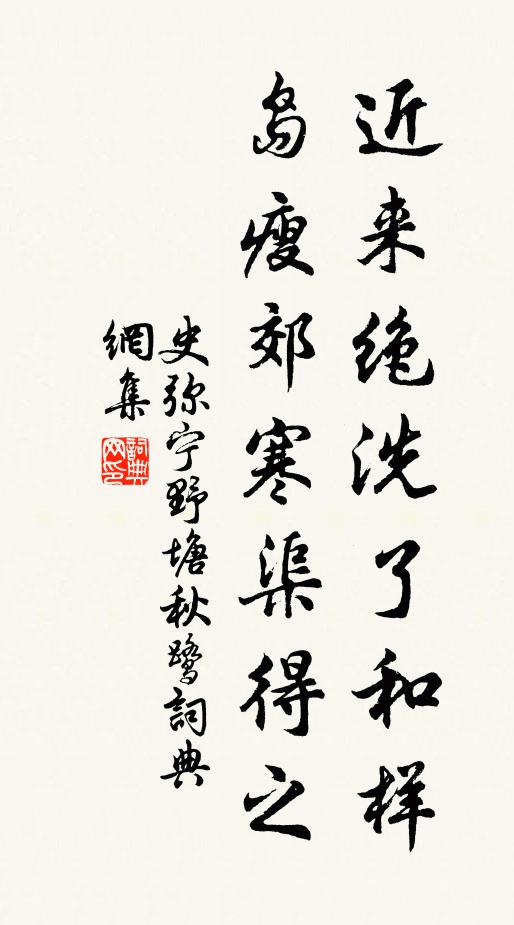 近来绝洗了和样
岛瘦郊寒渠得之
史弥宁野塘秋鹭詞典
網集
詞典網印